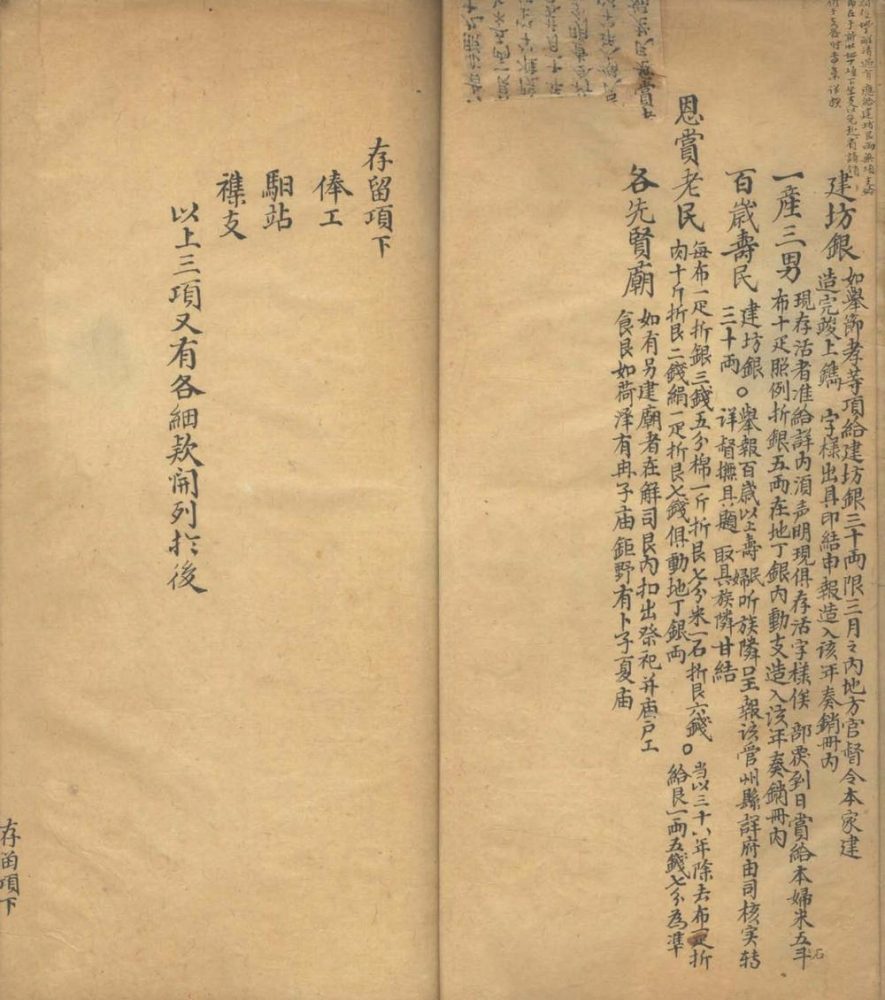 建坊銀
如舉節孝等項給建坊銀三十兩限三月之內地方官督令本家建
造完竣上鐫 字樣出具印結申報造入該年奏銷冊內
一產三男
現存活者准給詳內湏声明現俱存活字樣俟 部覆到日賞給本婦米五石
布十疋照例折銀五兩在地丁銀內動支造入該年奏銷冊內
百歲壽民
建坊銀
三十兩
○舉報百歲以上壽民婦听族隣呈報該管州縣詳府由司核实转
详督撫具題 取具族隣甘結
恩賞老民
每布一疋折銀三錢五分棉一斤折艮七分米一石折艮六錢
肉十斤折艮二錢絹一疋折艮七錢俱動地丁銀兩
○當以三十六年除去布疋折
給艮一兩五錢七分為準
各先賢廟
如有另建廟者在解司艮內扣出祭祀并庙户工
食艮如荷泽有冉子庙鉅野有卜子夏庙
存留項下
俸工
馹站
襍支
以上三項又有各細欵開列扵後
存留項下